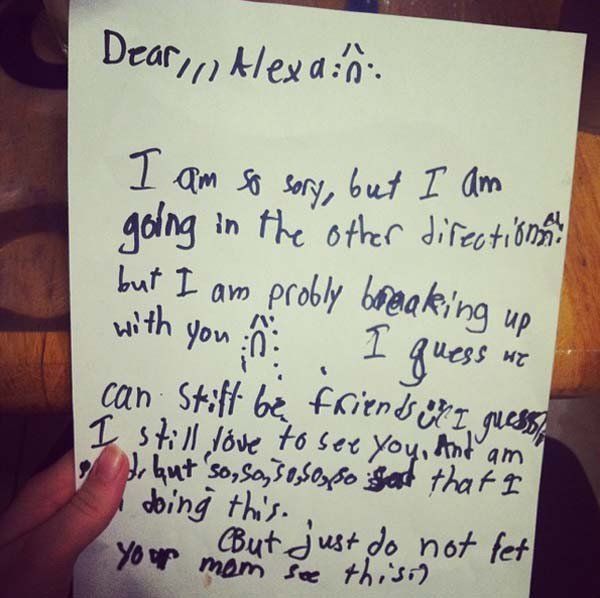 Dear,,,, Alexa
I am so sory, but I am
going in the other direction
but I am probly breaking up
with you
I guess we
can still be friends I guess
I still love to see you. And am
but so, so, so, so, so sad that I
doing this.
(But just do not let
your mom see this.)